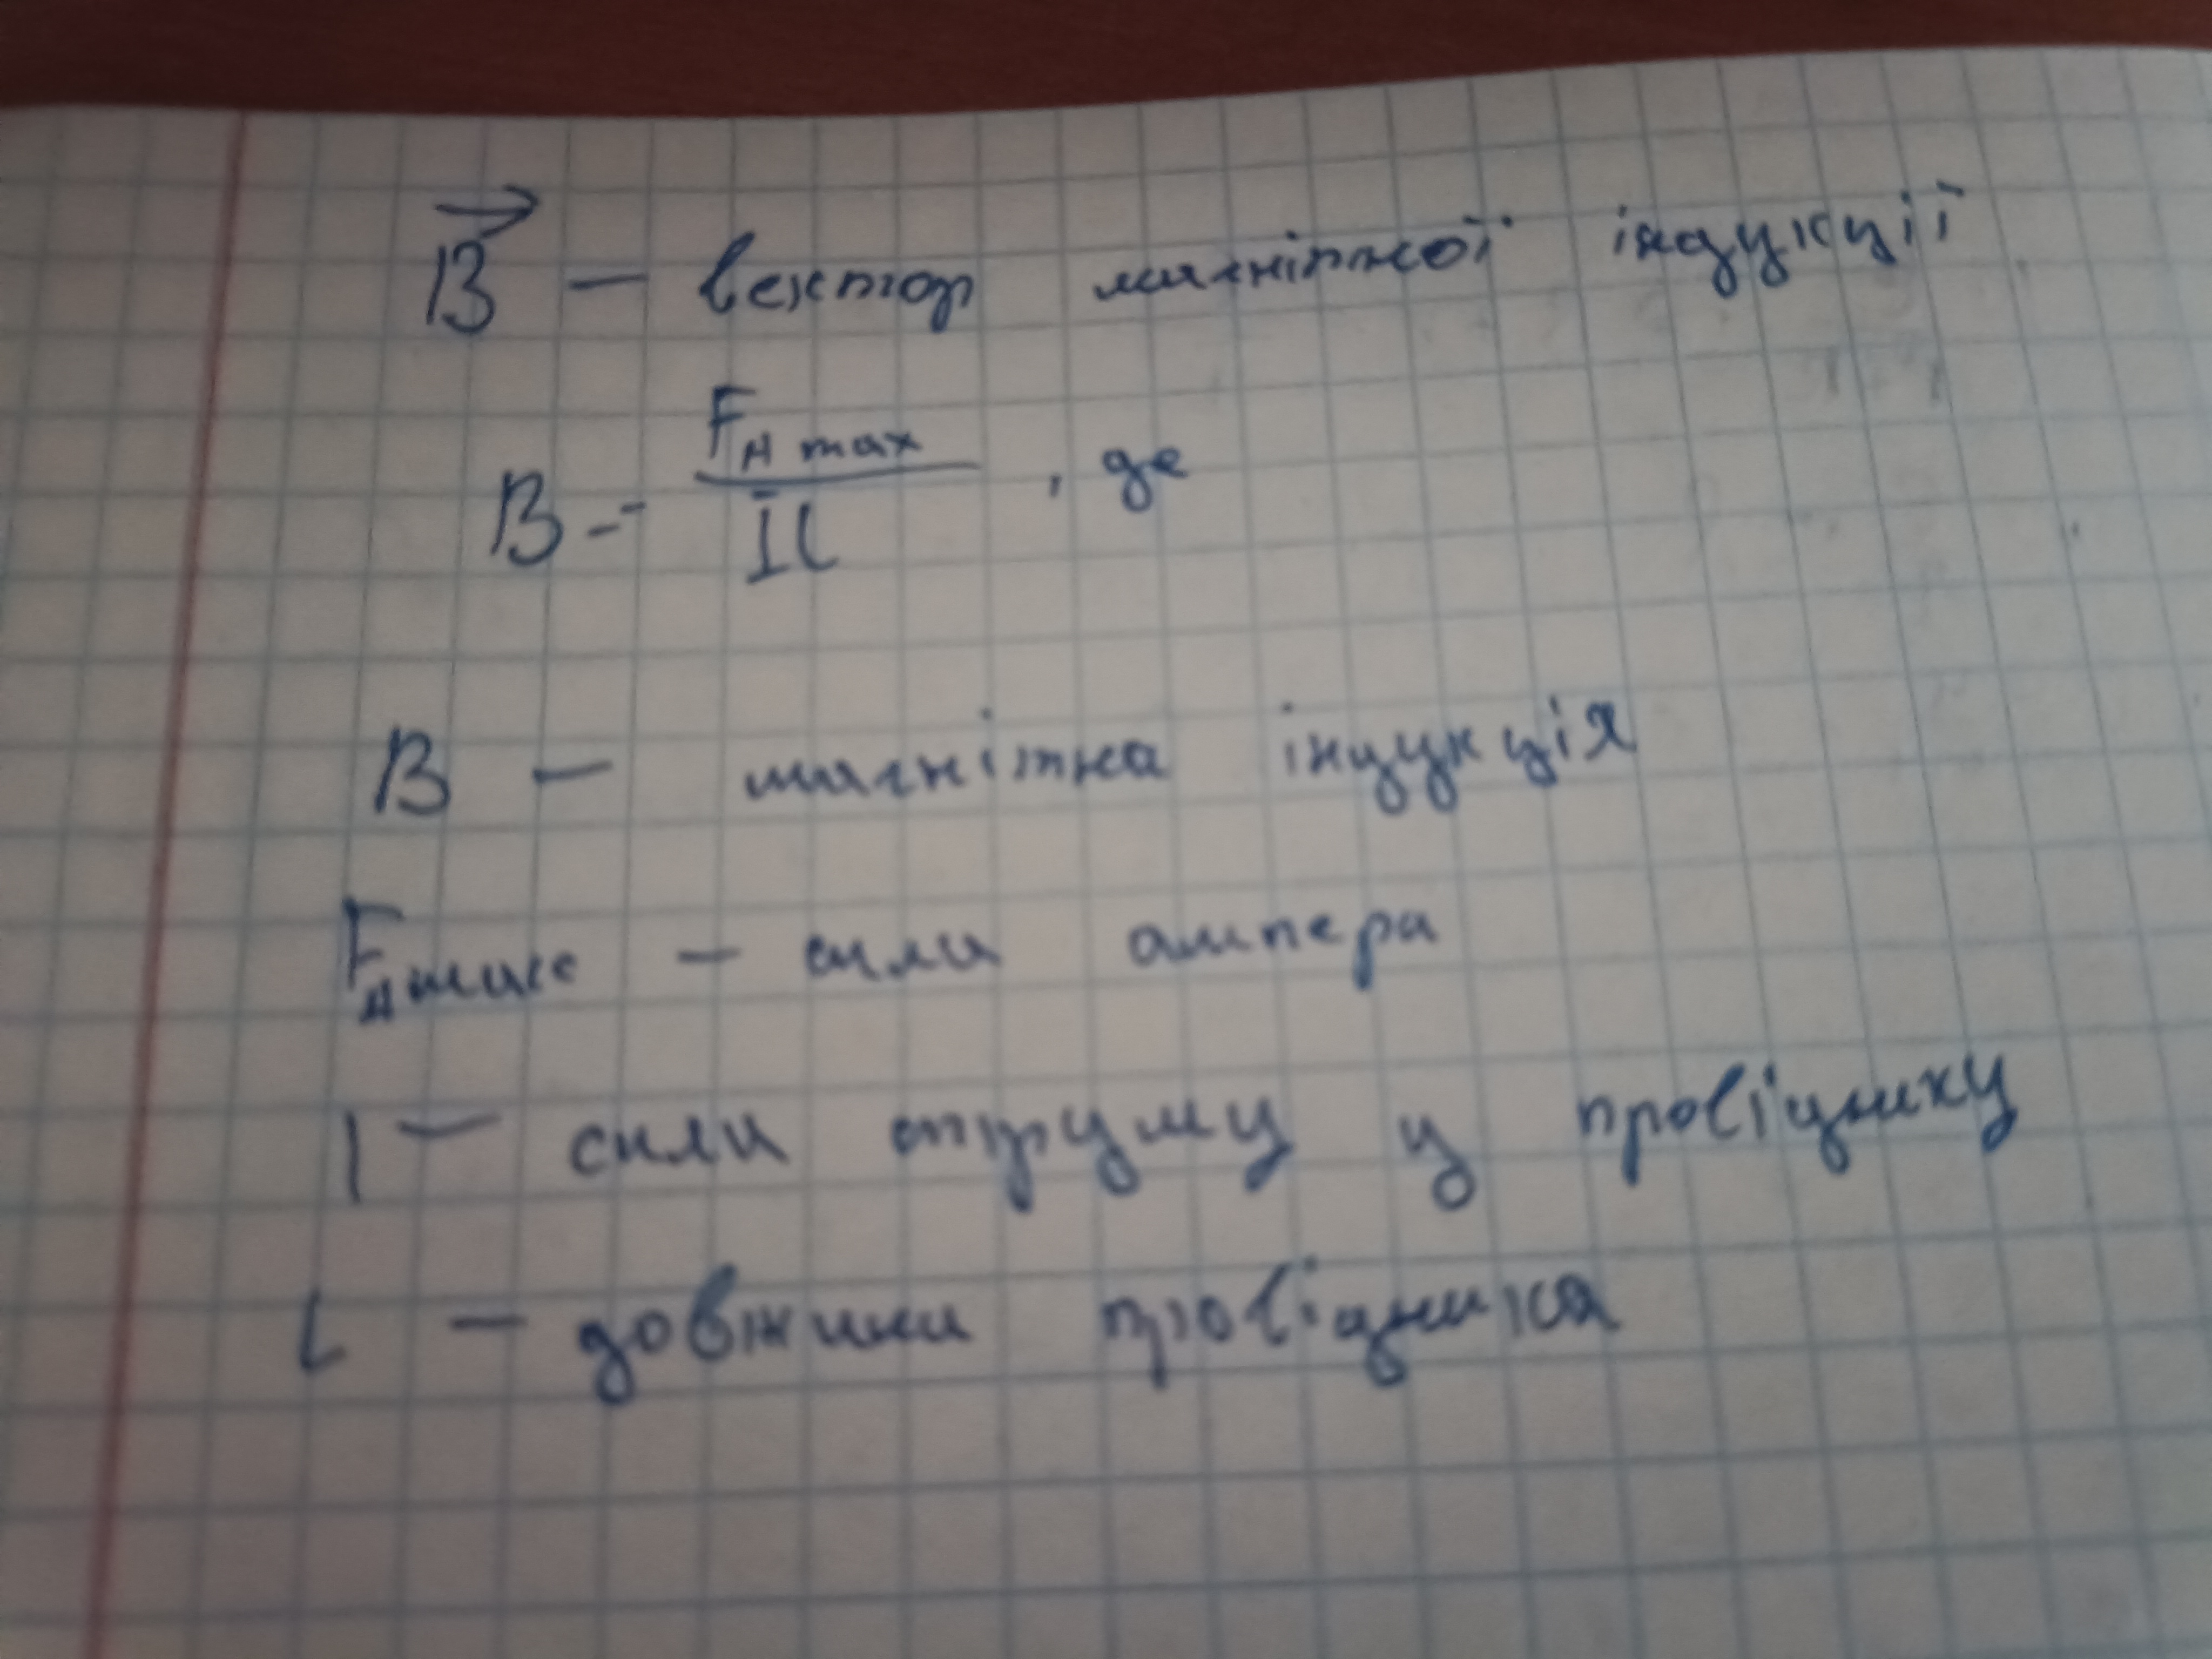 B⃗ – вектор магнітної індукції
B = F_A max / Il , де
B – магнітна індукція
F_A макс – сила ампера
I – сила струму у провіднику
l – довжина провідника